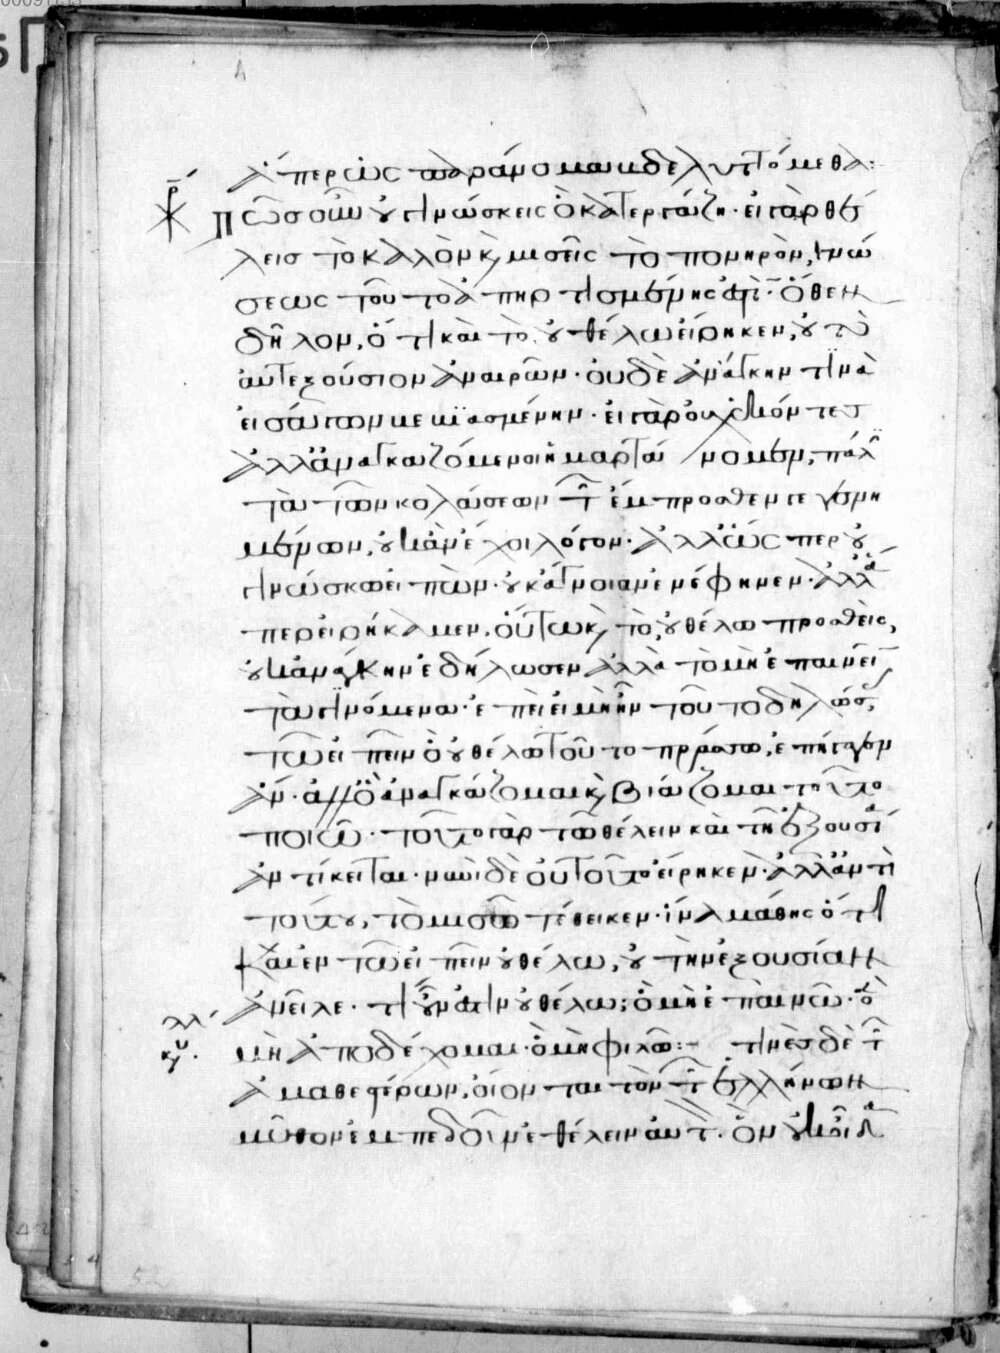 ἅπερ ὡς παράνομα βδελυττόμεθα:
Πῶς οὖν οὐ γινώσκεις ὃ κατεργάζη· εἰ γὰρ θέ
λεις τὸ καλὸν κ μισεῖς τὸ πονηρὸν, γνώ
σεως τοῦτο ἀπηρτισμένης ἐστὶ· ὅθεν
δῆλον, ὅτι καὶ τὸ οὐ θέλω εἴρηκεν, οὐ τὸ
αὐτεξούσιον ἀναιρῶν· οὐδὲ ἀνάγκην τινὰ
εἰσάγων βεβιασμένην· εἰ γὰρ οὐχ ἑκόντες
ἀλλ' ἀναγκαζόμενοι ἡμαρτάνομεν, πάλ
τὰ τῶν κολάσεων τ ἔμπροσθεν γεγενη
μένων, οὐκ ἂν ἔχοι λόγον· ἀλλ' ὥσπερ οὐ
γινώσκω εἰπὼν· οὐκ ἄγνοιαν ἐνέφηνεν· ἀλλ ἅ
περ εἰρήκαμεν, οὕτω κ τὸ, οὐ θέλω προσθεὶς,
οὐκ ἀνάγκην ἐδήλωσεν ἀλλὰ τὸ μὴ ἐπαινεῖ
τὰ γινόμενα· ἐπεὶ εἰ μὴ ἦν τοῦτο δηλῶσ,
τῶ εἰπεῖν ὃ οὐ θέλω τοῦτο πράσσω, ἐπήγαγεν
ἂν· ἀλλ' ὃ ἀναγκάζομαι κ βιάζομαι τοῦτο
ποιῶ· τοῦτο γὰρ τῶ θέλειν καὶ τῆ ἐξουσία
ἀντίκειται· νυνὶ δὲ οὐ τοῦτο εἴρηκεν· ἀλλ' ἀντὶ
τούτου, τὸ μισῶ τέθεικεν· ἵνα μάθης ὅτι
καὶ ἐν τῶ εἰπεῖν οὐ θέλω, οὐ τὴν ἐξουσίαν
ἀνεῖλε· τί οὖν ἐστιν οὐ θέλω; ὃ μὴ ἐπαινῶ· ὃ
μὴ ἀποδέχομαι· ὃ μὴ φιλῶ:- τινὲς δὲ τ
ἀμαθεστέρων, οἷον